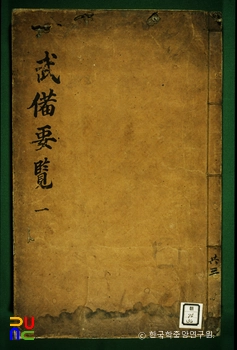 武備要覽 一
共三
© 한국학중앙연구원